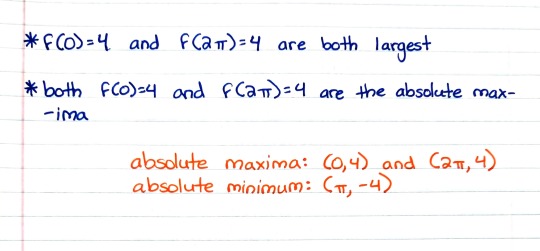 * f(0)=4 and f(2π)=4 are both largest
* both f(0)=4 and f(2π)=4 are the absolute max-
-ima
absolute maxima: (0,4) and (2π,4)
absolute minimum: (π,-4)